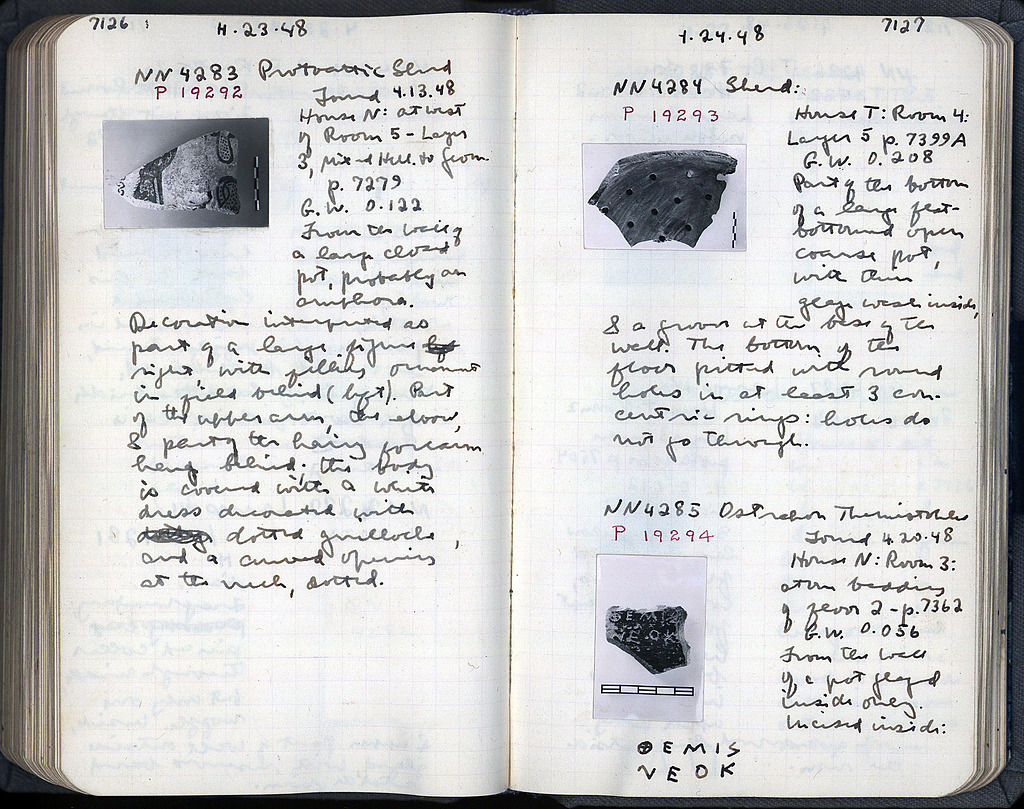 7126
4.23.48
NN 4283 Protoattic Sherd
P 19292
Found 4.13.48
House N: at west
of Room 5 - Layer
3, mixed Hell. to Geom
p. 7279
G.W. 0.122
From the wall of
a large closed
pot, probably an
amphora.
Decoration interpreted as
part of a large figure
right with filling ornament
in field behind (left). Part
of the upper arm, the elbow,
& part of the hairy forearm
hang behind; the body
is covered with a white
dress decorated with
dotted guilloche,
and a curved opening
at the neck, dotted.
7127
4.24.48
NN4284 Sherd:
P 19293
House T: Room 4:
Layer 5 p. 7399A
G.W. 0.208
Part of the bottom
of a large flat-
bottomed open
coarse pot,
with thin
glaze wash inside,
& a groove at the base of the
wall. The bottom of the
floor pitted with round
holes in at least 3 con-
centric rings: holes do
not go through.
NN4285 Ostrakon Themistokles
P 19294
Found 4.20.48
House N: Room 3:
bedding
of floor 2 - p. 7362
G.W. 0.056
From the wall
of a pot glazed
inside only.
Incised inside:
ΘEMIS
NEOK
ΘEMIS
NEOK